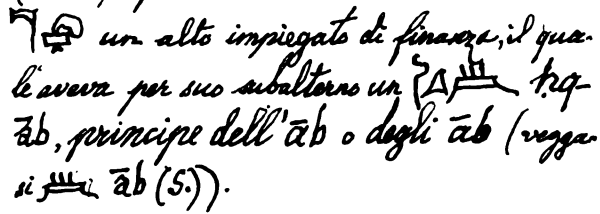 un alto impiegato di finanza, il qua-
le aveva per suo subalterno un ḥq-
āb, principe dell'āb o degli āb (vegga-
si āb (S.)).